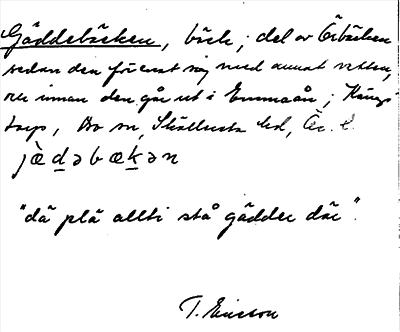 Gäddebäcken, bäck; del av Öibäcken
sedan den förenat sig med annat vatten,
och innan den går ut i Emmaån; Kångs-
torp, Bo sn, Skållersta hd, Ör. l.
jæ̀d̲əbæk̲ən
"dä plä allti stå gädder där".
T. Ericsson